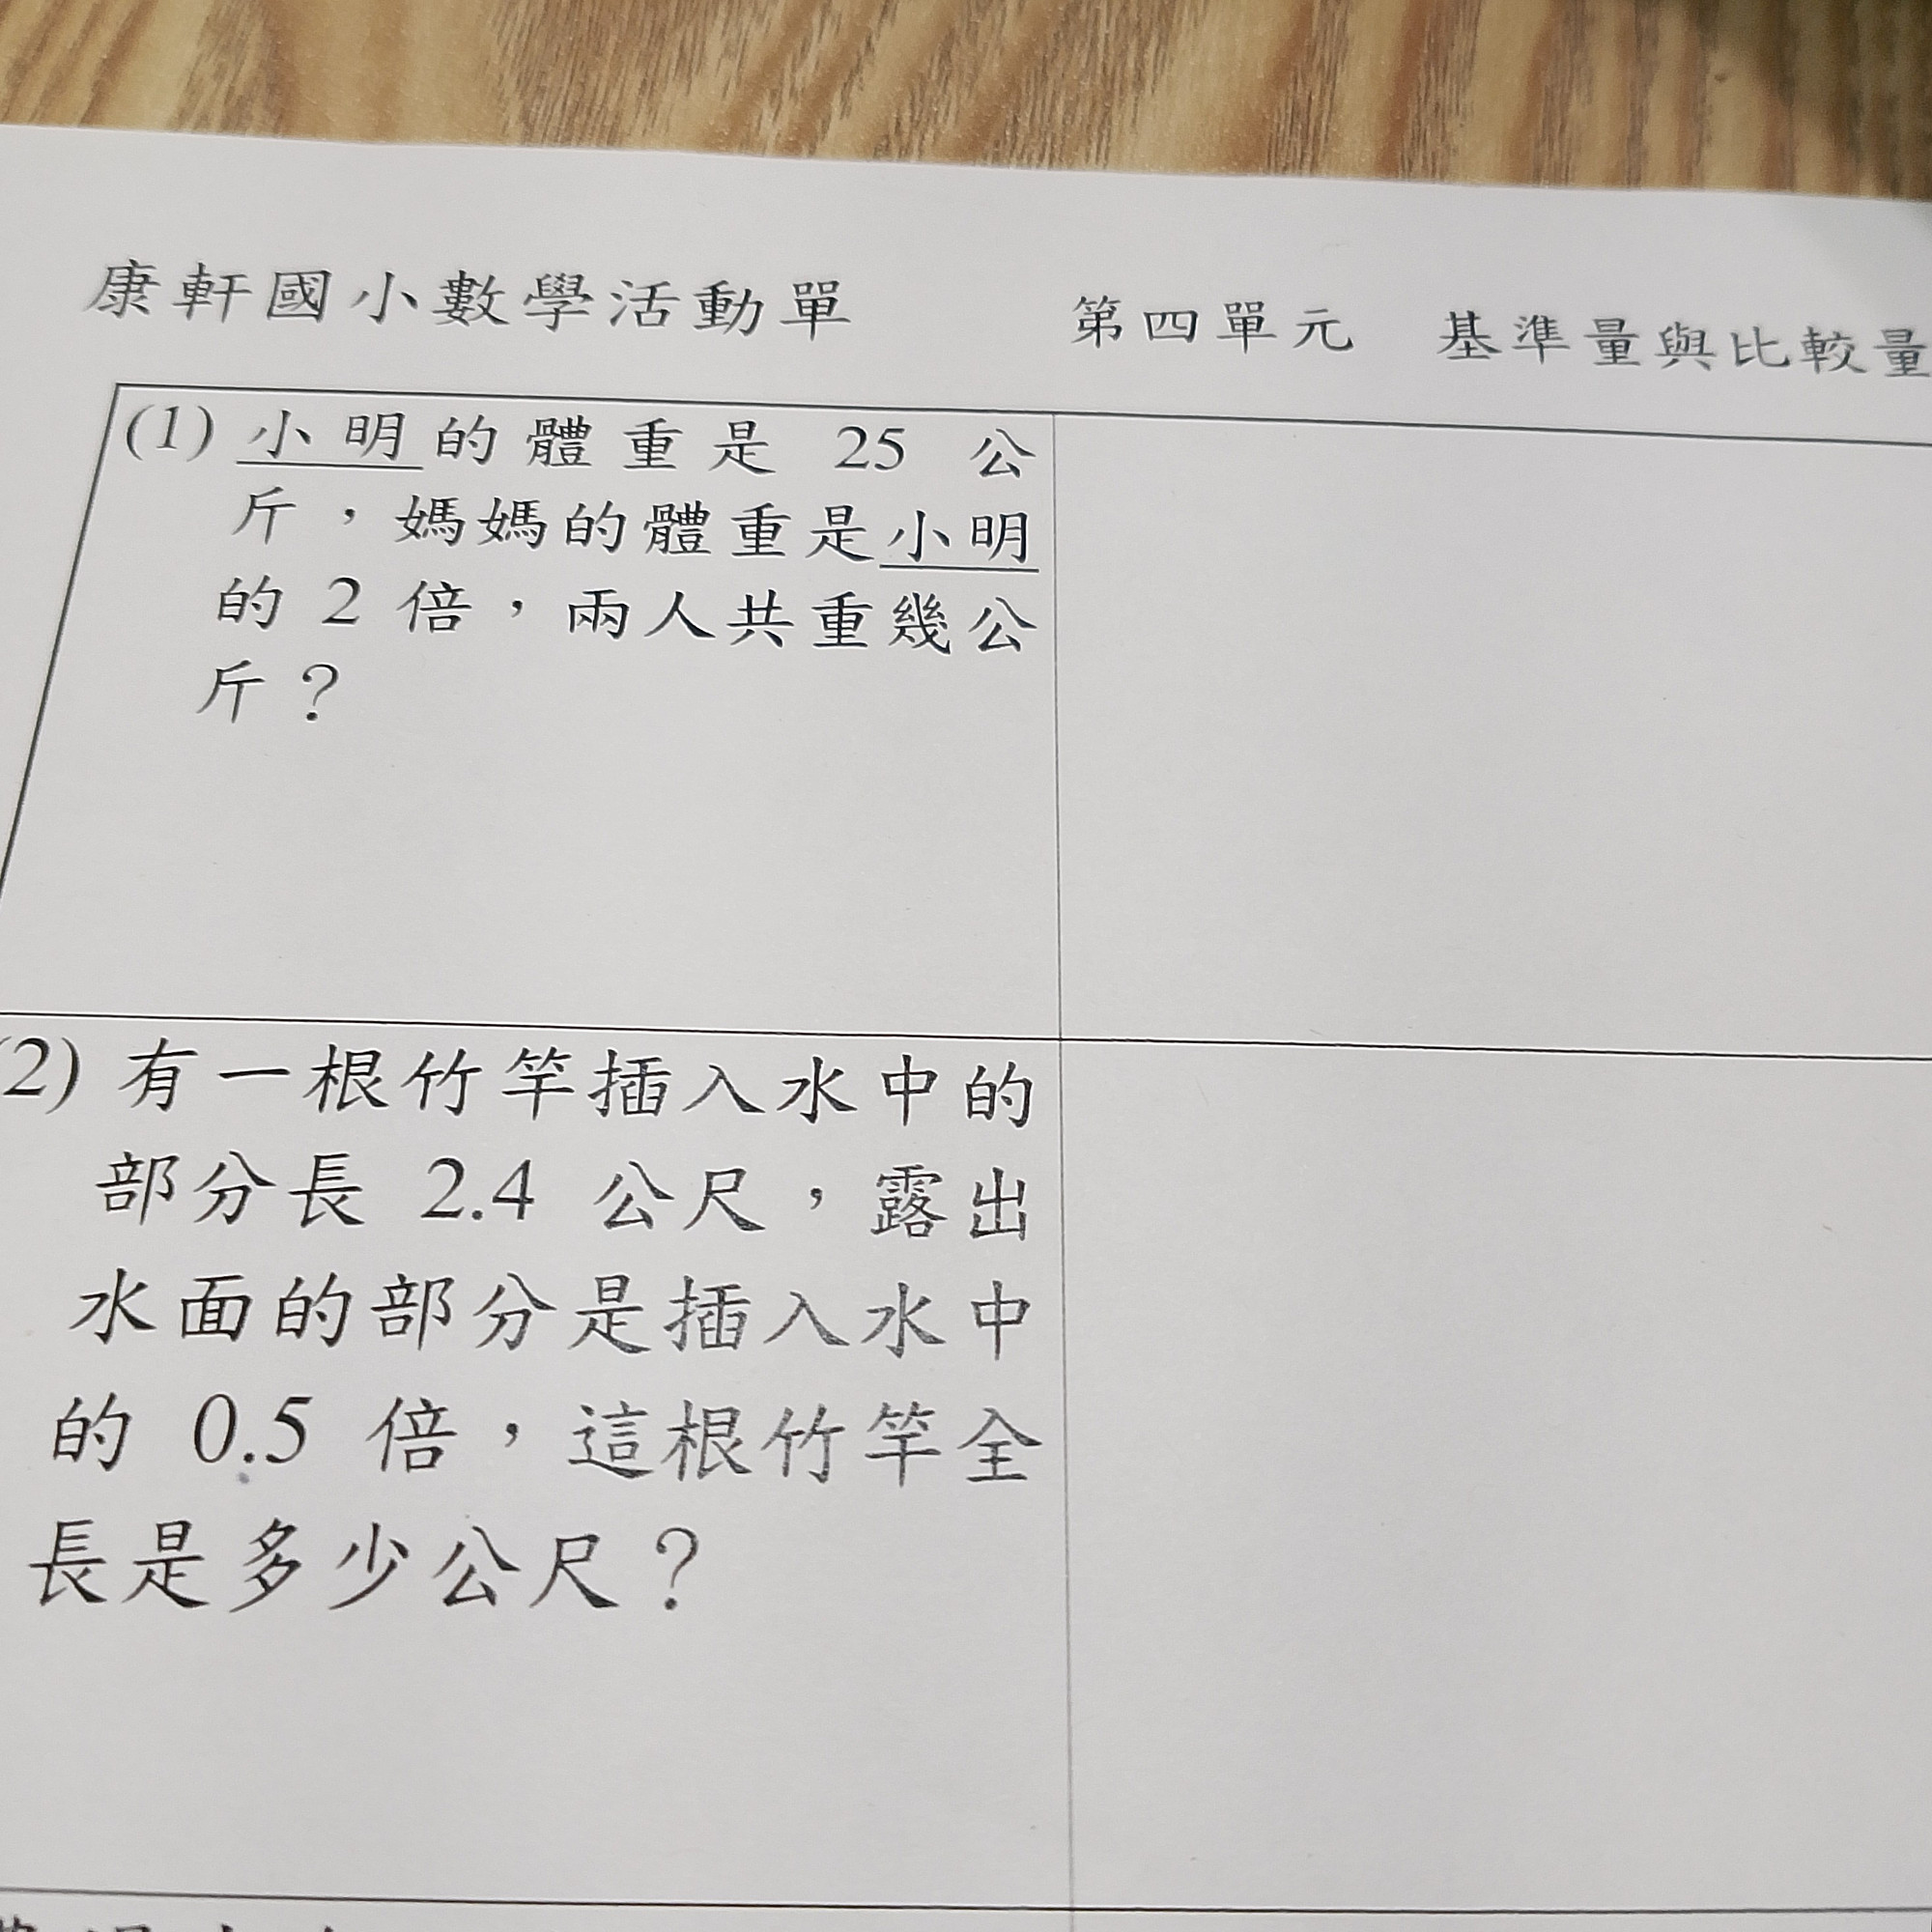 康軒國小數學活動單　第四單元　基準量與比較量
(1) 小明的體重是 25 公
斤，媽媽的體重是小明
的 2 倍，兩人共重幾公
斤？
(2) 有一根竹竿插入水中的
部分長 2.4 公尺，露出
水面的部分是插入水中
的 0.5 倍，這根竹竿全
長是多少公尺？